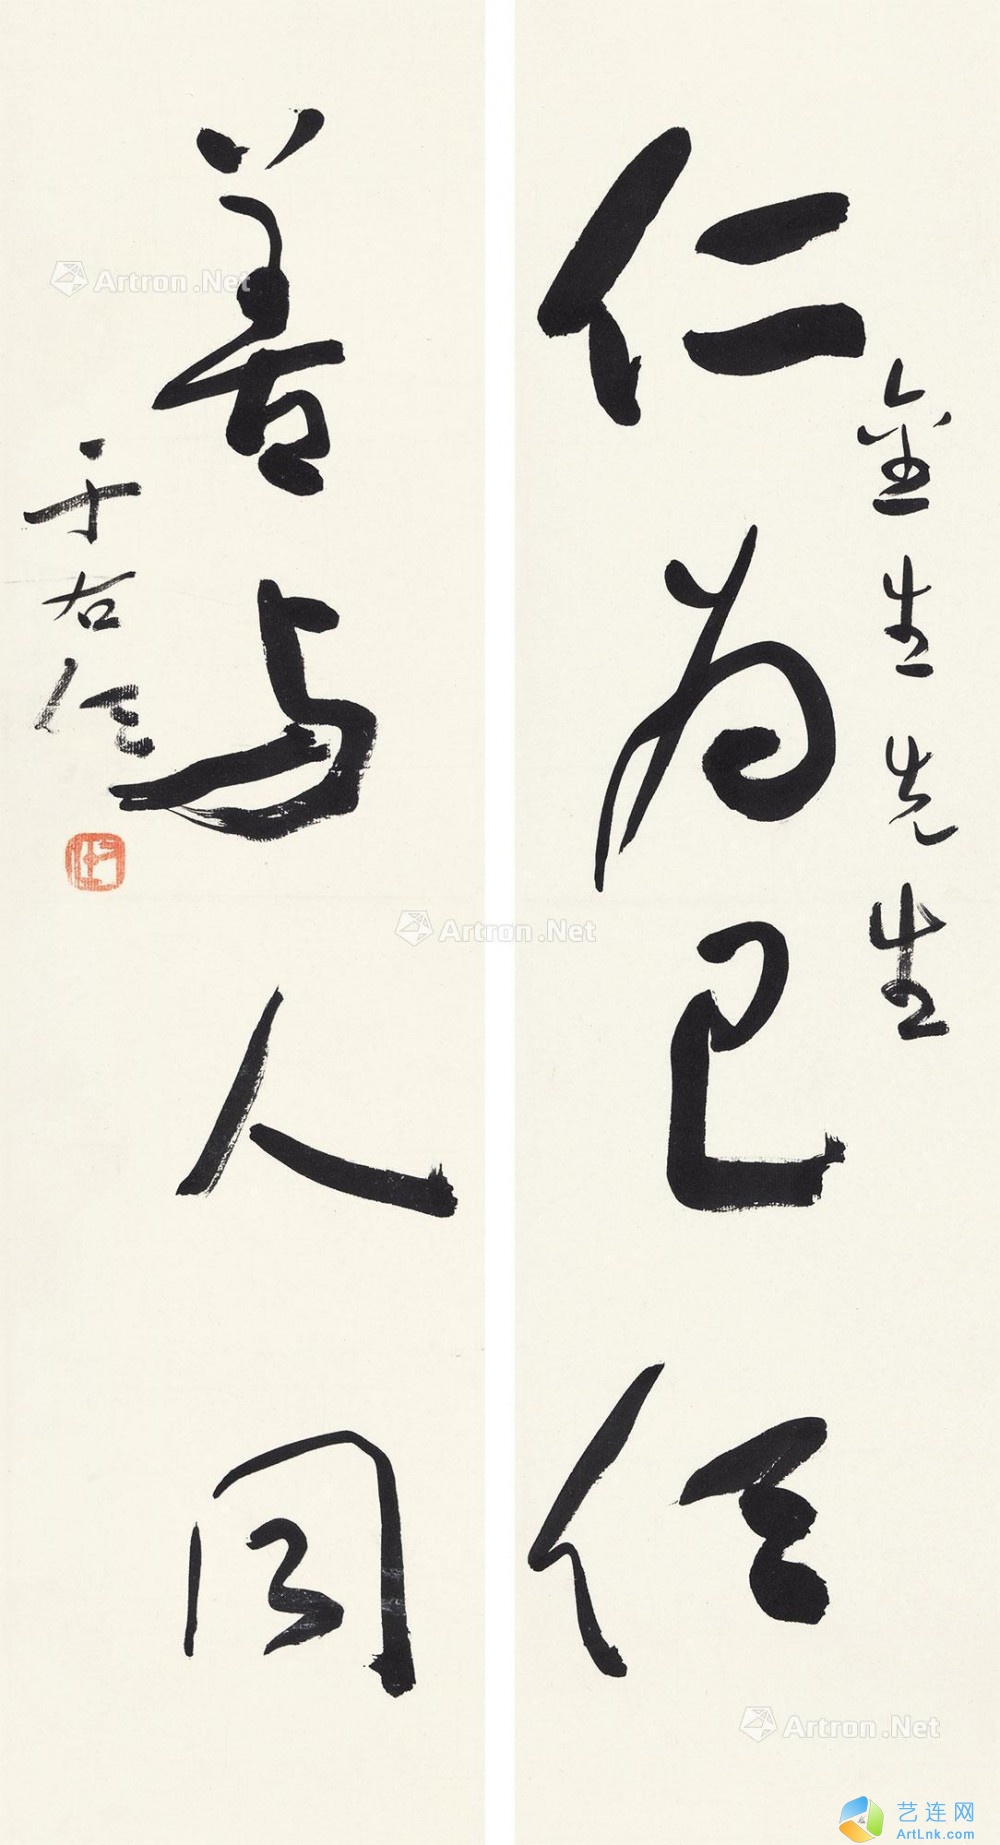 金生先生
仁为己任
善与人同
于右任
Artron.Net
Artron.Net
Artron.Net
艺连网
ArtLnk.com